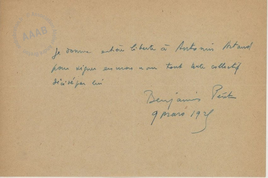 AAAB
Je donne entière liberté à Antonin Artaud
pour signer en mon nom tout texte collectif
rédigé par lui
Benjamin Péret
9 mars 1925